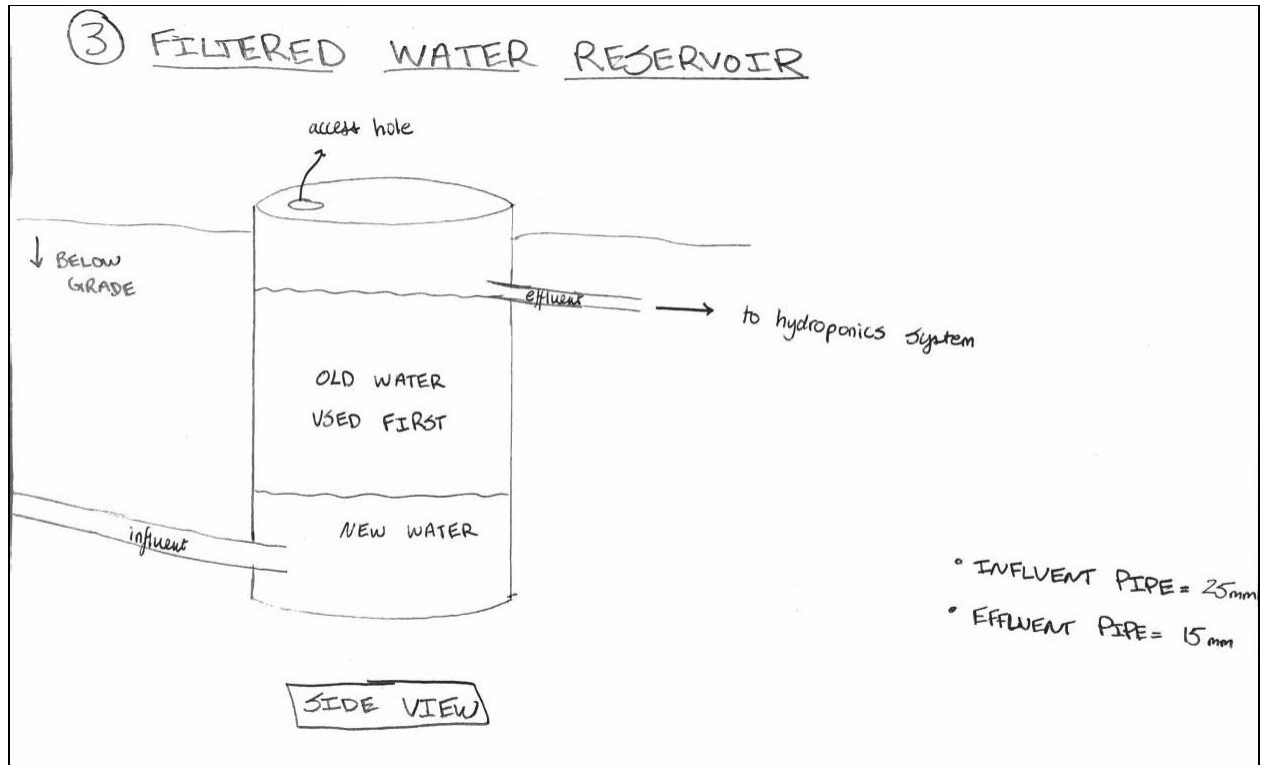 3 FILTERED WATER RESERVOIR
access hole
↓ BELOW
GRADE
effluent
to hydroponics system
OLD WATER
USED FIRST
influent
NEW WATER
• INFLUENT PIPE = 25mm
• EFFLUENT PIPE = 15mm
SIDE VIEW